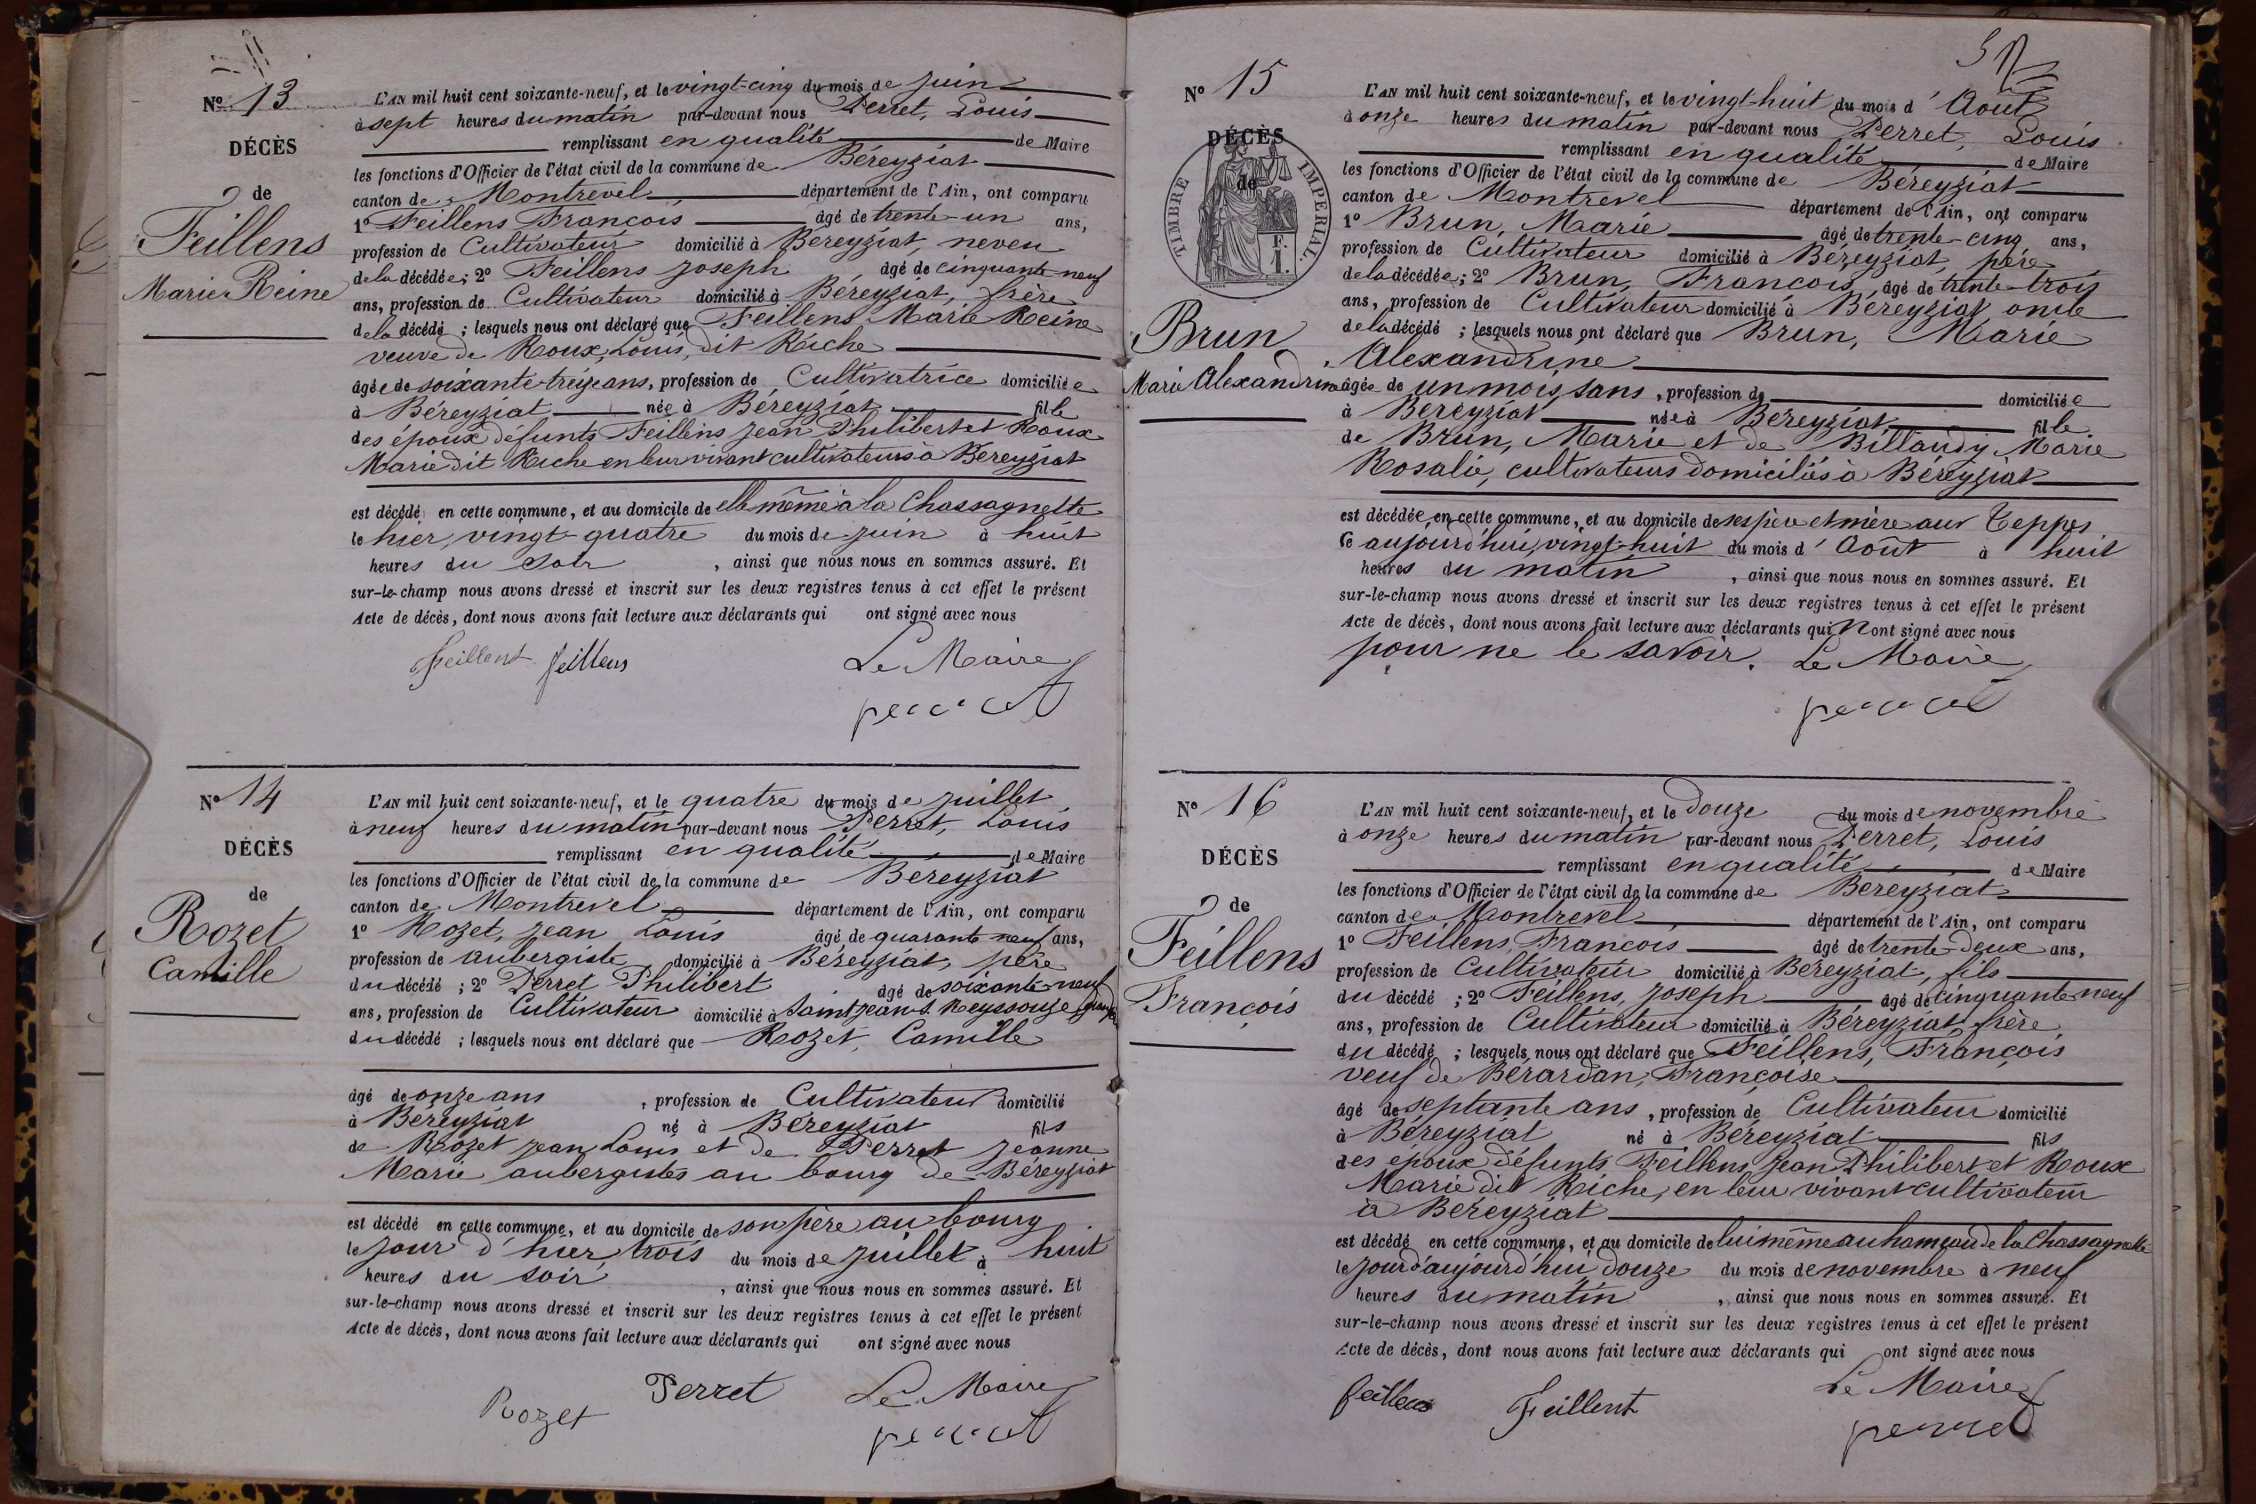 N° 13
DÉCÈS
de
Feillens
Marie Reine
L'AN mil huit cent soixante-neuf, et le vingt-cinq du mois de juin
à sept heures du matin par-devant nous Perret, Louis
remplissant en qualité de Maire
les fonctions d'Officier de l'état civil de la commune de Béreyziat
canton de Montrevel département de l'Ain, ont comparu
1° Feillens François âgé de trente-un ans,
profession de Cultivateur domicilié à Béreyziat, neveu
de la décédée; 2° Feillens Joseph âgé de cinquante-neuf
ans, profession de Cultivateur domicilié à Béreyziat, frère
de la décédé ; lesquels nous ont déclaré que Feillens Marie Reine
veuve de Roux, Louis, dit Riche
âgée de soixante-treize ans, profession de Cultivatrice domiciliée
à Béreyziat née à Béreyziat fille
des époux défunts Feillens Jean Philibert et Roux
Marie dit Riche en leur vivant cultivateurs à Béreyziat
est décédé en cette commune, et au domicile de elle même à la Chassagnette
le hier, vingt-quatre du mois de juin à huit
heures du soir , ainsi que nous nous en sommes assuré. Et
sur-le-champ nous avons dressé et inscrit sur les deux registres tenus à cet effet le présent
Acte de décès, dont nous avons fait lecture aux déclarants qui ont signé avec nous
Feillent feillens Le Maire
perret
N° 14
DÉCÈS
de
Rozet
Camille
L'AN mil huit cent soixante-neuf, et le quatre du mois de juillet
à neuf heures du matin par-devant nous Perret, Louis
remplissant en qualité de Maire
les fonctions d'Officier de l'état civil de la commune de Béreyziat
canton de Montrevel département de l'Ain, ont comparu
1° Rozet, Jean Louis âgé de quarante neuf ans,
profession de aubergiste domicilié à Béreyziat, père
du décédé ; 2° Perret Philibert âgé de soixante-neuf
ans, profession de Cultivateur domicilié à Saint Jean s. Reyssouze
du décédé ; lesquels nous ont déclaré que Rozet, Camille
âgé de onze ans , profession de Cultivateur domicilié
à Béreyziat né à Béreyziat fils
de Rozet Jean Louis et de Perret Jeanne
Marie aubergistes au bourg de Béreyziat
est décédé en cette commune, et au domicile de son père au bourg
le jour d'hier, trois du mois de juillet à huit
heures du soir , ainsi que nous nous en sommes assuré. Et
sur-le-champ nous avons dressé et inscrit sur les deux registres tenus à cet effet le présent
Acte de décès, dont nous avons fait lecture aux déclarants qui ont signé avec nous
Rozet Perret Le Maire
perret
N° 15
DÉCÈS
de
TIMBRE IMPÉRIAL.
Brun
Marie Alexandrine
L'AN mil huit cent soixante-neuf, et le vingt-huit du mois d'Août
à onze heures du matin par-devant nous Perret, Louis
remplissant en qualité de Maire
les fonctions d'Officier de l'état civil de la commune de Béreyziat
canton de Montrevel département de l'Ain, ont comparu
1° Brun, Marie âgé de trente-cinq ans,
profession de Cultivateur domicilié à Béreyziat, père
de la décédée; 2° Brun, François, âgé de trente-trois
ans, profession de Cultivateur domicilié à Béreyziat oncle
de la décédé ; lesquels nous ont déclaré que Brun, Marie
Alexandrine
âgée de un mois sans , profession de domiciliée
à Béreyziat née à Béreyziat fille
de Brun, Marie et de Billaudy Marie
Rosalie, cultivateurs domiciliés à Béreyziat
est décédée en cette commune, et au domicile de ses père et mère aux Teppes
le aujourd'hui, vingt-huit du mois d'Août à huit
heures du matin , ainsi que nous nous en sommes assuré. Et
sur-le-champ nous avons dressé et inscrit sur les deux registres tenus à cet effet le présent
Acte de décès, dont nous avons fait lecture aux déclarants qui n'ont signé avec nous
pour ne le savoir. Le Maire
perret
N° 16
DÉCÈS
de
Feillens
François
L'AN mil huit cent soixante-neuf, et le douze du mois de novembre
à onze heures du matin par-devant nous Perret, Louis
remplissant en qualité de Maire
les fonctions d'Officier de l'état civil de la commune de Béreyziat
canton de Montrevel département de l'Ain, ont comparu
1° Feillens, François âgé de trente-deux ans,
profession de Cultivateur domicilié à Béreyziat, fils
du décédé ; 2° Feillens, Joseph âgé de cinquante neuf
ans, profession de Cultivateur domicilié à Béreyziat frère
du décédé ; lesquels nous ont déclaré que Feillens, François
veuf de Bérardan, Françoise
âgé de septante ans , profession de Cultivateur domicilié
à Béreyziat né à Béreyziat fils
des époux défunts Feillens, Jean Philibert et Roux
Marie dit Riche, en leur vivant cultivateur
à Béreyziat
est décédé en cette commune, et au domicile de lui même au hameau de la Chassagnette
le jour d'aujourd'hui douze du mois de novembre à neuf
heures du matin , ainsi que nous nous en sommes assuré. Et
sur-le-champ nous avons dressé et inscrit sur les deux registres tenus à cet effet le présent
Acte de décès, dont nous avons fait lecture aux déclarants qui ont signé avec nous
feillens Feillent Le Maire
perret